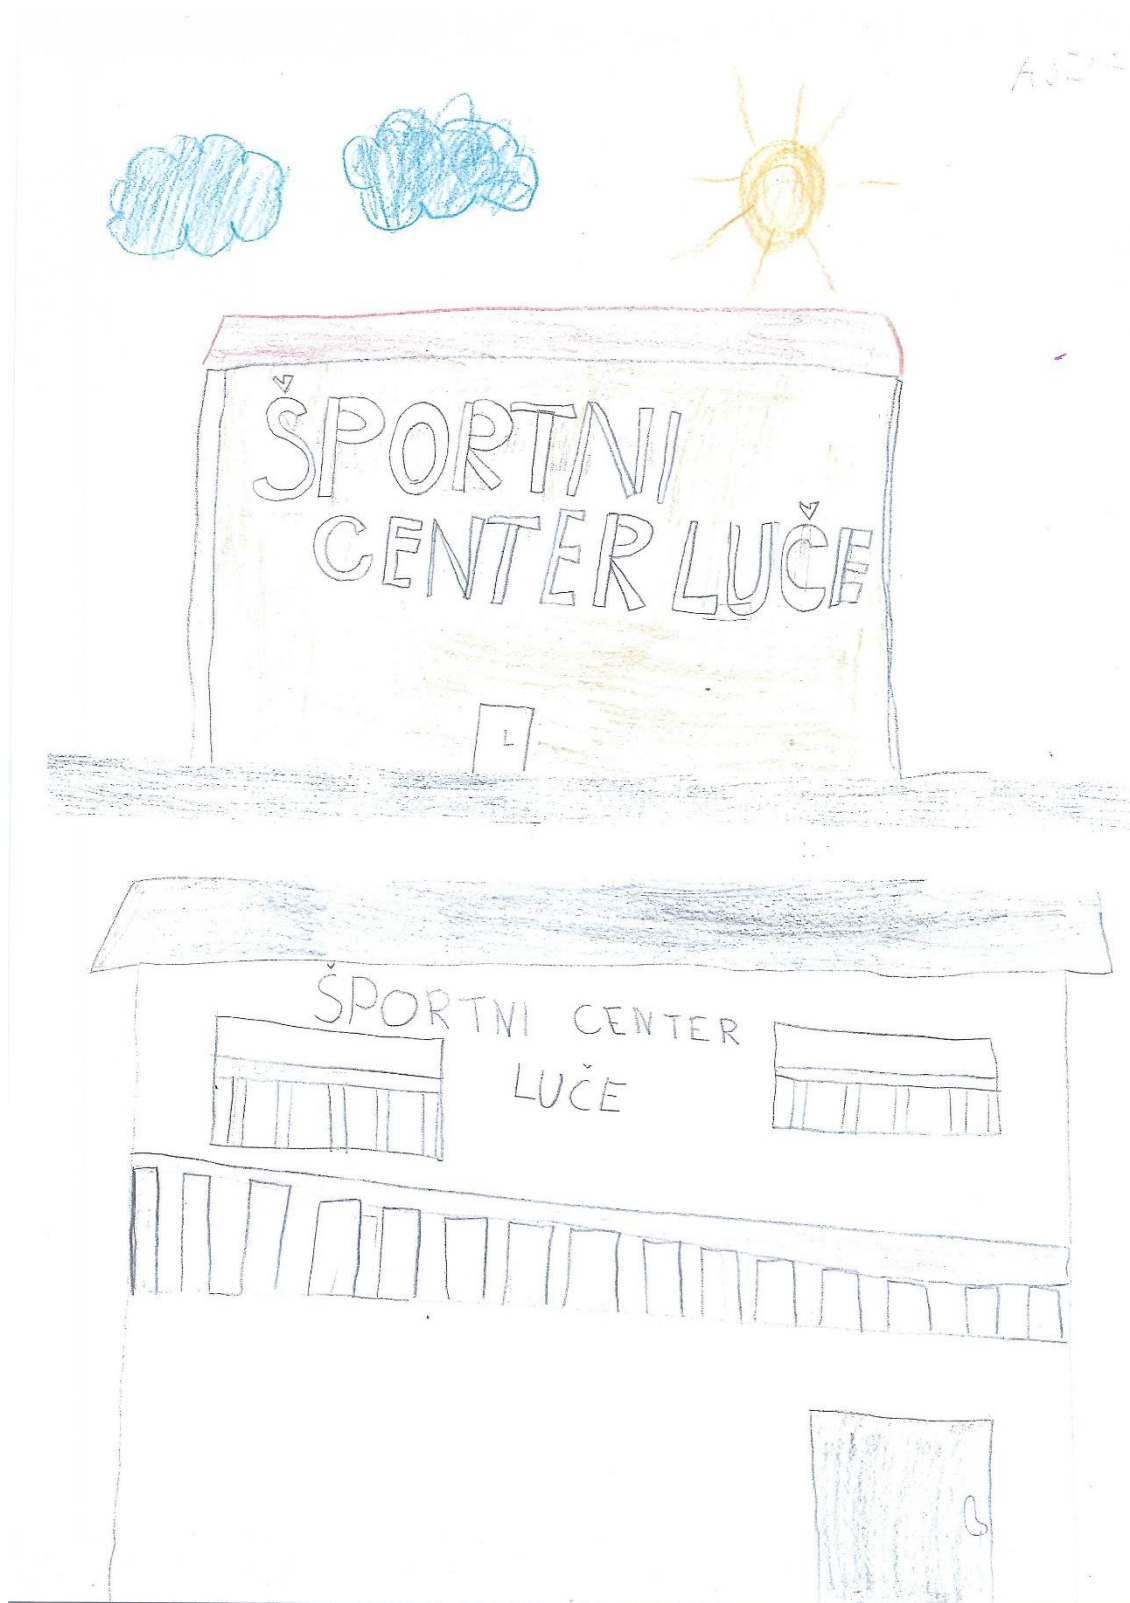 ŠPORTNI
CENTER LUČE
ŠPORTNI CENTER
LUČE